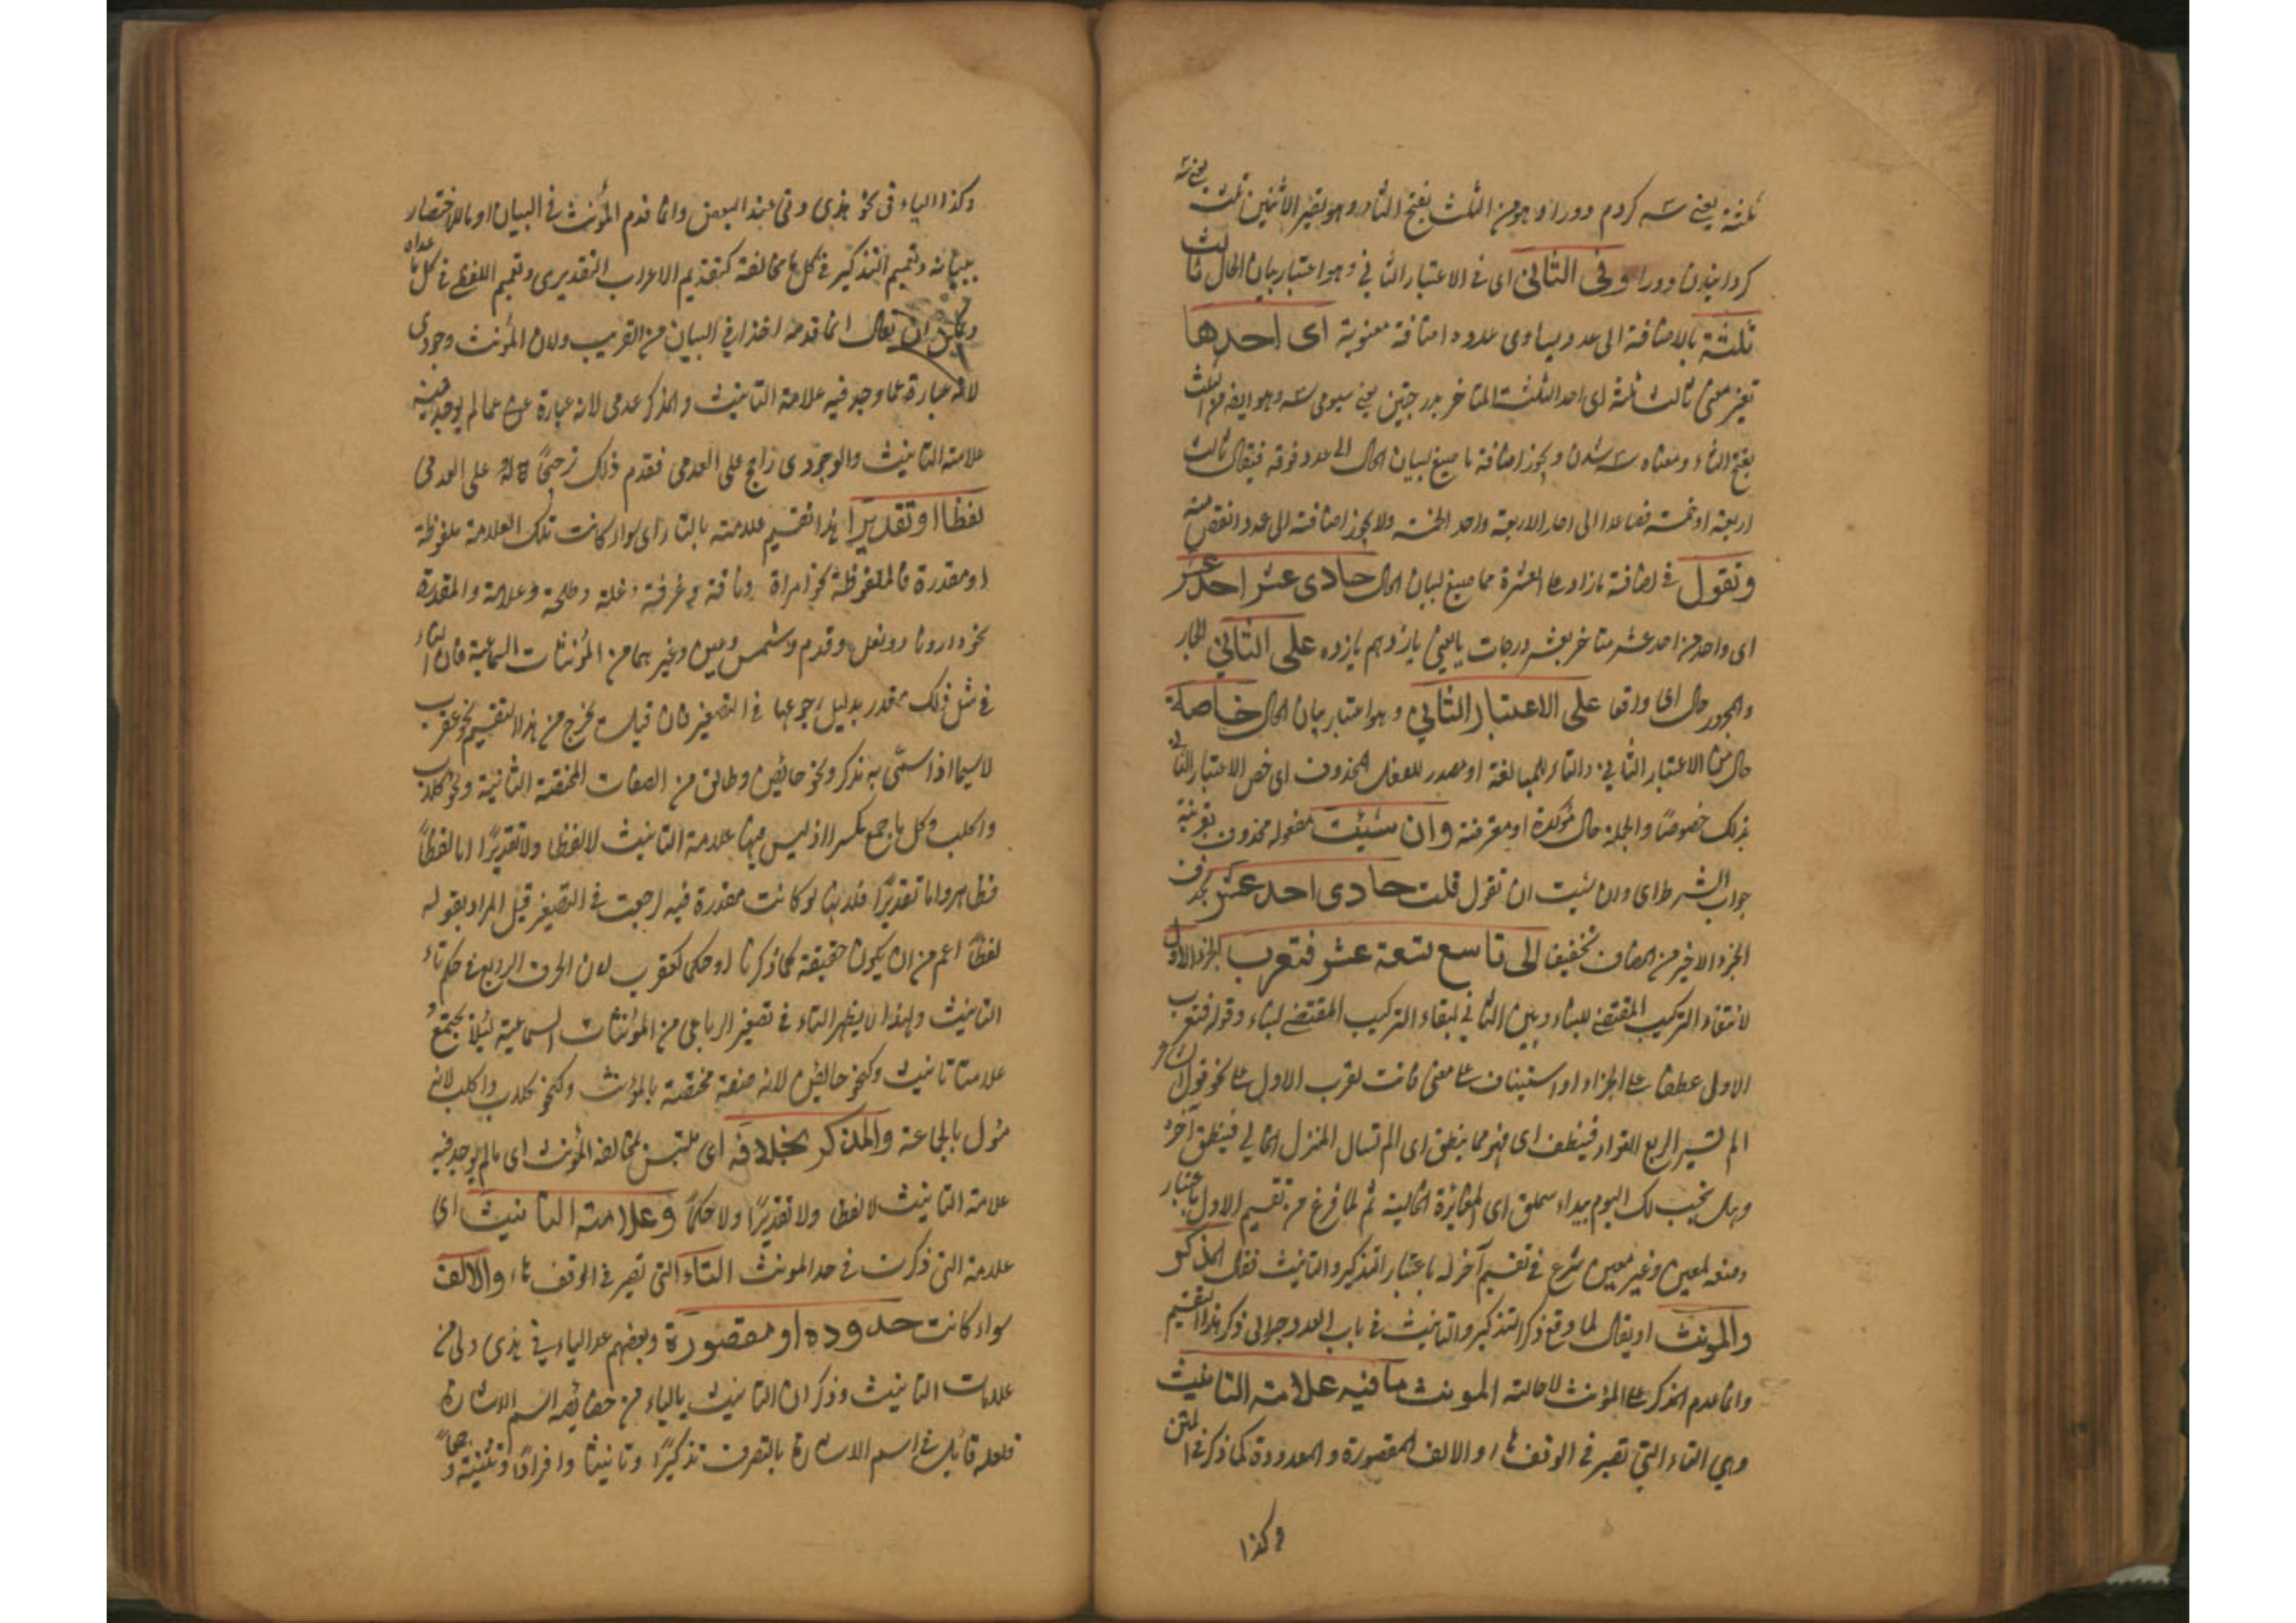 ثلثة يعنى سه كردم دو را وهو من الثلث بفتح الثاء وهو تصير الاثنين ثلثة يعنى سه
كردانيدن دو را وفى الثانى اى فى الاعتبار الثانى وهو اعتبار بيان الحال ثالث
ثلثة بالاضافة الى عدد يساوى عدده اضافة معنوية اى احدها
معنى ثالث ثلثة اى احد الثلثة المتاخر بدرجتين يعنى سيومى سه وهو ايضا من الثلث
بفتح الثاء ومعناه سه شدن ويجوز اضافة ما صيغ لبيان الحال الى عدد فوقه فيقال ثالث
اربعة او خمسة فصاعدا الى احاد الاربعة واحد الخمسة ولا يجوز اضافته الى عدد انقص منه
وتقول فى اضافة ما زاد على العشرة مما صيغ لبيان الحال حادى عشر احد عشر
اى واحد من احد عشر متاخر بعشر درجات يعنى يازدهم يازده على الثانى الجار
والمجرور حال اى واقعا على الاعتبار الثانى وهو اعتبار بيان الحال خاصة
حال من الاعتبار الثانى والتاء للمبالغة او مصدر للفعل المحذوف اى خص الاعتبار الثانى
بذلك خصوصًا والجملة حال مؤكدة او معترضة وان شئت مفعوله محذوف بقرينة
جواب الشرط اى وان شئت ان تقول قلت حادى احد عشر بحذف
الجزء الاخير من المضاف تخفيفا الى تاسع تسعة عشر فتعرب الجزء الاول
لانتفاء التركيب المقتضى للبناء وبنى الثانى لبقاء التركيب المقتضى لبناء وقوله فتعرب
الاول عطف على الجزاء او استيناف على معنى فانت تعرب الاول على نحو قوله
الم تسئل الربع القواء فينطق اى فهو مما ينطق اى الم تسال المنزل الخالى فينطق آخره
وهل يخبرنك اليوم بيداء سملق اى المفازة الخالية ثم لما فرغ من تقسيم الاول باعتبار
وضعه لمعين وغير معين شرع فى تقسيم آخر له باعتبار التذكير والتانيث فقال المذكر
والمونث او يقال لما وقع ذكر التذكير والتانيث فى باب العدد جرى الى ذكر هذا التقسيم
وانما قدم المذكر على المؤنث لاصالته المونث ما فيه علامة التانيث
وهى التاء التى تصير فى الوقف هاء والالف المقصورة والممدودة كما ذكر فى المتن
وكذا
وكذا الياء فى نحو هذى وتى عند البعض وانما قدم المؤنث فى البيان اولا للاختصار
ببيانه وتعميم التذكير فى كل ما يخالفه كتقديم الاعراب التقديرى وتعميم اللفظى فى كل ما عداه
ويمكن ان يقال انما قدمه اخذا فى البيان من القريب ولان المؤنث وجودى
لانه عبارة عما وجد فيه علامة التانيث والمذكر عدمى لانه عبارة عما لم يوجد فيه
علامة التانيث والوجودى راجح على العدمى فقدم ذلك ترجيحًا له على العدمى
لفظا او تقديرًا هذا تقسيم علامته بالتاء اى سواء كانت تلك العلامة ملفوظة
او مقدرة فالملفوظة نحو امراة وناقة وغرفة وطلحة وعلامة والمقدرة
نحو دار ونار ونعل وقدم وشمس وعين وغيرهما من المؤنثات السماعية فان التاء
فى مثل ذلك مقدر بدليل رجوعها فى التصغير فان قيل يخرج من هذا التقسيم نحو عقرب
لا سيما اذا سمى به مذكر ونحو حائض وطالق من الصفات المختصة الثابتة ونحو كلاب
واكلب وكل ما جمع مكسرا اذ ليس فيها علامة التانيث لا لفظا ولا تقديرًا اما لفظاً
فظاهر واما تقديرًا فلانها لو كانت مقدرة فيه لرجعت فى التصغير قيل المراد بقوله
لفظاً اعم من ان يكون حقيقة كما ذكرنا او حكما كعقرب لان الحرف الرابع فى حكم تاء
التانيث ولهذا لا يظهر التاء فى تصغير الرباعى من المؤنثات السماعية لئلا يجتمع
علامتا تانيث وكنحو حائض لانه صفة مختصة بالمؤنث وكنحو كلاب واكلب لانه
مئول بالجماعة والمذكر بخلافه اى ملتبس بمخالفة المؤنث اى ما لم يوجد فيه
علامة التانيث لا لفظا ولا تقديرًا ولا حكماً وعلامة التانيث اى
علامة التى ذكرت فى حد المونث التاء التى تصير فى الوقف هاء والالف
سواء كانت ممدودة او مقصورة وبعضهم عد الياء فى هذى وتى من
علامات التانيث وذكر ان التانيث بالياء من خصائص اسم الاشارة
فلعله قائل فى اسم الاشارة بالتصرف تذكيرًا وتانيثا وافرادًا وتثنية وجمعاً